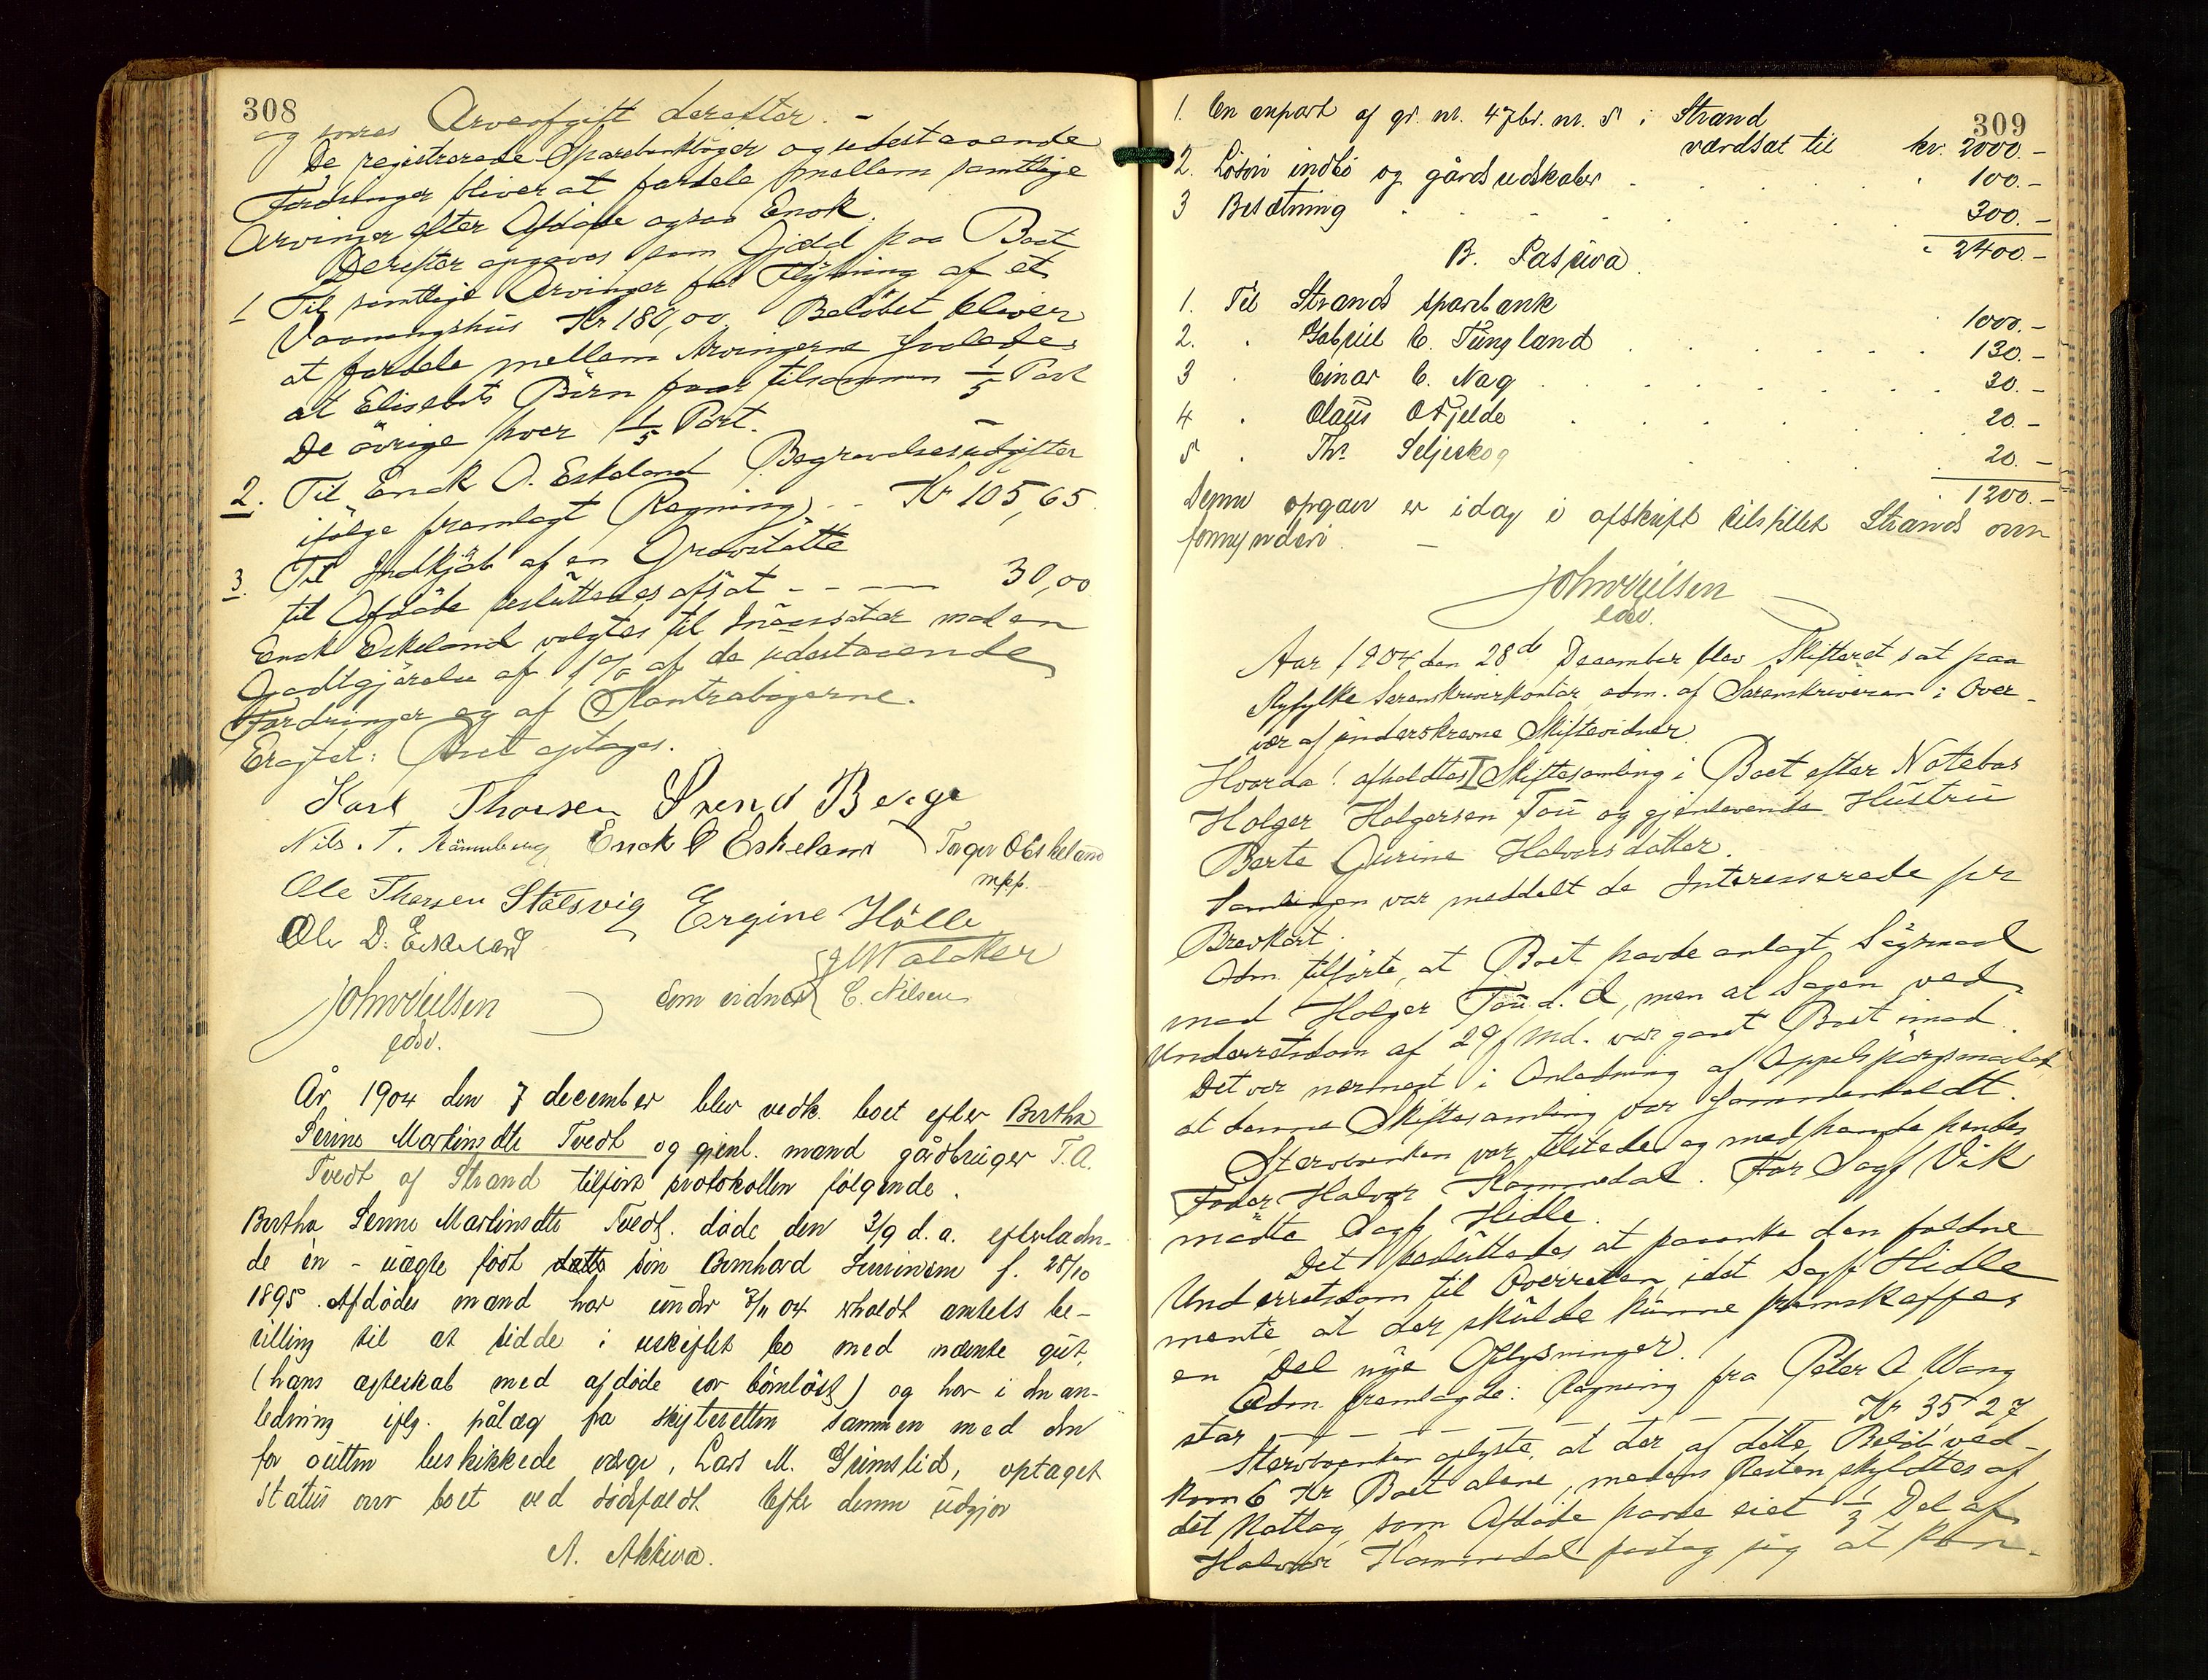 308
og svares Arveafgift derefter. -
De registrerede Sparebankbøger og udestaaende
Fordringer bliver at fordele mellem samtlige
Arvinger efter Afdøde ogsaa Enok.
Derefter opgaves som Gjæld paa Boet
1 Til samtlige Arvinger for Flytning af et
Vaaningshus Kr 180,00 Beløbet bliver
at fordele mellem Arvingerne saaledes
at Elisabets Börn faar tilsammen 1/5 Part
De övrige hver 1/5 Part.
2. Til Enok O. Eskeland Begravelsesudgifter
ifølge fremlagt Regning - - Kr 105,65
3. Til Indkjøb af en Gravstøtte
til Afdøde besluttedes afsat - - - 30,00
Enok Eskeland valgtes til Incassator mod en
Godtgjørelse af % af de udestaaende
Fordringer og af Kontrabøgerne.
Eragtet: Boet optages.
Karl Thorsen Svend Berge
Nils. T. Enok O Eskeland Torger O Eskeland
mpp.
Ole Thorsen Stålsvig Ergine Hölle
Ole D. Eskeland
Walcker
John Nilsen som vidner C. Nilsen
edsv.
År 1904 den 7 december blev vedk. boet efter Bertha
Serine Martinsdtr Tvedt og gjenl. mand gårdbruger T.A.
Tvedt af Strand tilført protokollen følgende.
Bertha Serine Martinsdtr Tvedt. døde den 2/9 d. a. efterladen-
de èn - uægte født datt sön Bernhard f. 28/10
1895. Afdødes mand har under 3/11 04 erholdt amtets be-
villing til at sidde i uskiftet bo med nævnte gut,
(hans ægteskab med afdøde var börnlöst) og har i den an-
ledning iflg. pålæg fra skifteretten sammen med den
for gutten beskikkede værge, Lars M. Grimslid, optaget
status over boet ved dödsfaldt. Efter denne udgjør
A. Aktiva.
309
1. En anpart af gr. nr. 47 br. nr. 5 i Strand
værdsat til kr. 2000.-
2. Lösöri indbo og gårdsudskaber . . . 100.-
3 Besætning . . . 300.-
2400.-
B. Passiva.
1. Til Strands sparebank 1000.-
2. . Gabriel E. Tungland . . . 130.-
3 . Einar E. Nag . . . 30.-
4 . Olaus Ofjelde . . . 20.-
5 . Ths Seljeskog . . . 20.-
1200.-
Denne opgave er idag i afskrift tilstillet Strands over
formynderi. -
John Nilsen
edsv.
Aar 1904 den 28de December blev Skifteret sat paa
Ryfylke Sorenskriverkontor, adm. af Sorenskriveren i Over-
vær af underskrevne Skiftevidner.
Hvorda! afholdtes I Skiftesamling i Boet efter Notebas
Holger Holgersen Tou og gjenlevende Hustru
Berte Gurine Halvorsdatter.
Samlingen var meddelt de Interesserede pr
Brevkort.
Adm. tilførte, at Boet havde anlagt Søgsmaal
mod Holger Tou d. Æ, men at Sagen ved
Underretsdom af 29/ Md. var gaaet Boet imod.
Det var nærmest i Anledning af Appelspørgsmaalet
at denne Skiftesamling var sammenkaldt.
Stervboenken var tilstede og med hende hendes
Fader Halvor Kommedal. For Sagf Vik
mødte Sagf Hidle.
Det besluttedes at paaanke den faldne
Underretsdom til Overretten, idet Sagf Hidle
mente, at der skulde kunne fremskaffes
en Del nye Oplysninger.
Adm. fremlagde: Regning fra Peter A Wang
stor - - - - - Kr 35,27
Stervboenken oplyste, at der af dette Beløb ved-
kom 6 Kr Boet alene, medens Resten skyldtes af
det Notlag, som Afdøde havde eiet 1/3 Del af.
Halvor Kommedal paatog sig at kon-